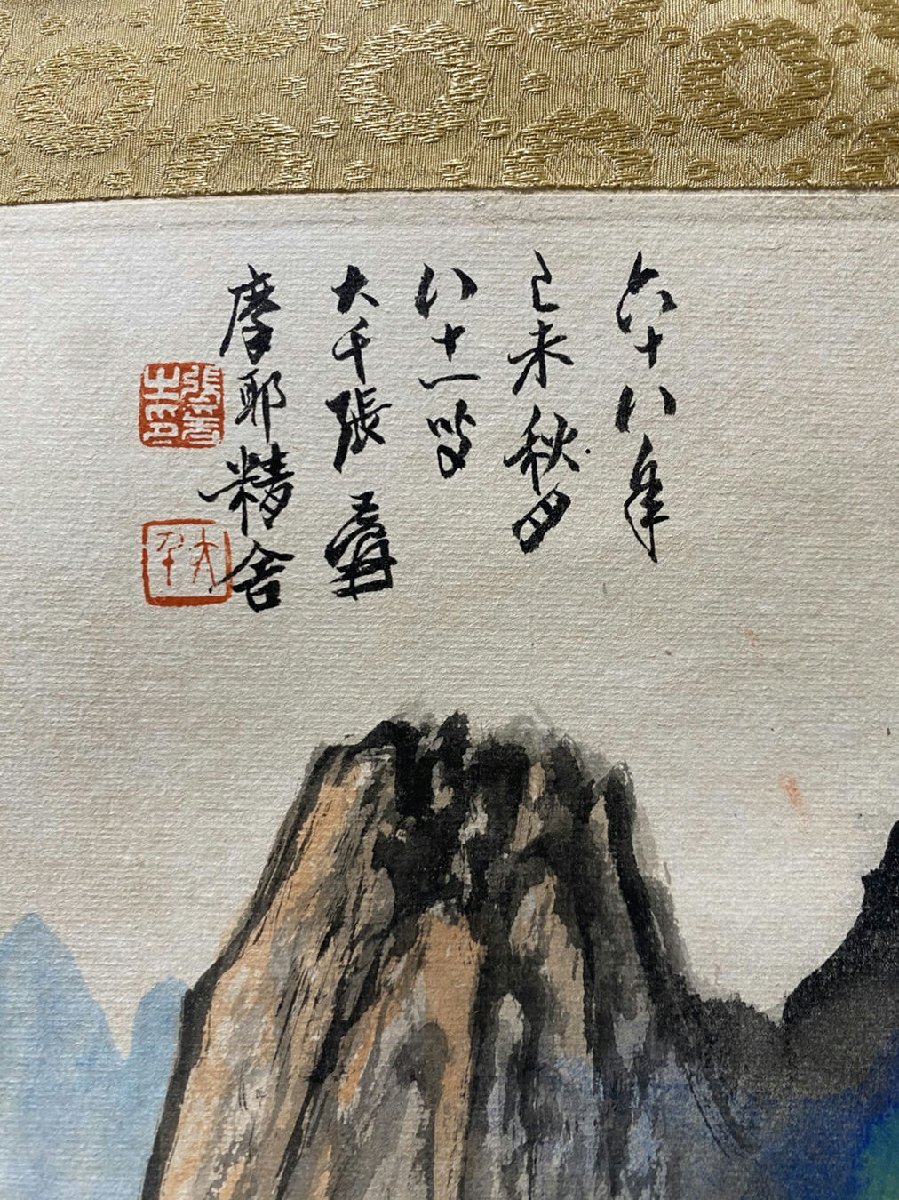 六十八年
己未秋月
八十一叟
大千張爰
摩耶精舍
張爰之印
大千